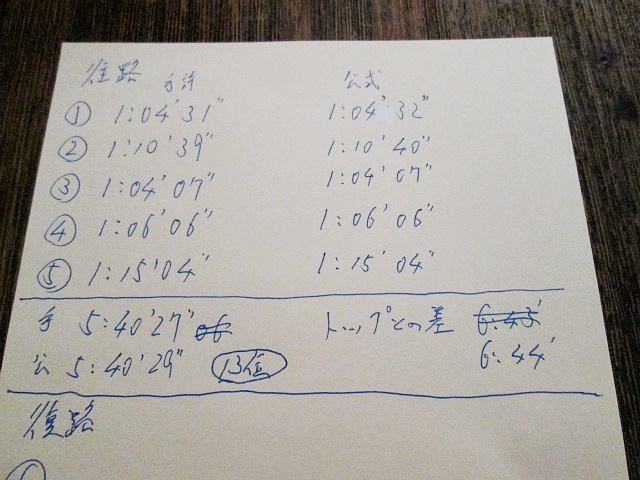 往路 手許 公式
① 1:04'31" 1:04'32"
② 1:10'39" 1:10'40"
③ 1:04'07" 1:04'07"
④ 1:06'06" 1:06'06"
⑤ 1:15'04" 1:15'04"
手 5:40'27" トップとの差 6:43'
公 5:40'29" 13位 6:44'
復路